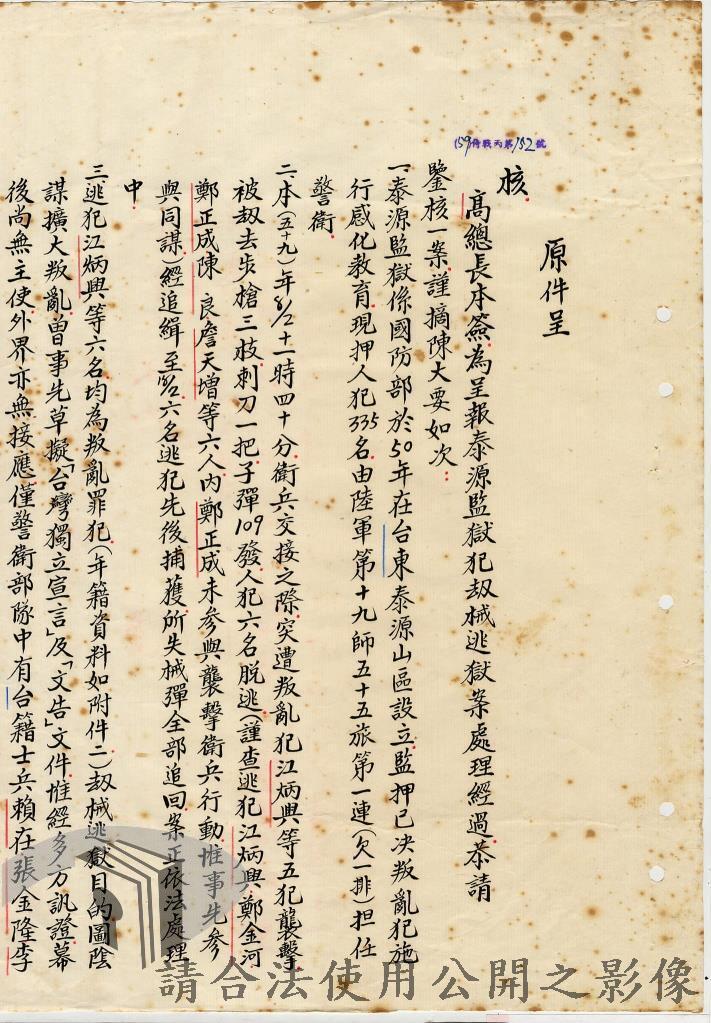 (59)侍戰丙第152號
原件呈
核
高總長本簽為呈報泰源監獄犯劫械逃獄案處理經過恭請
鑒核一案謹摘陳大要如次：
一泰源監獄係國防部於50年在台東泰源山區設立監押已決叛亂犯施
行感化教育現押人犯335名由陸軍第十九師五十五旅第一連(欠一排)担任
警衛
二本(五十九)年8/2十一時四十分衛兵交接之際突遭叛亂犯江炳興等五犯襲擊
被劫去步槍三枝刺刀一把子彈109發人犯六名脫逃(謹查逃犯江炳興鄭金河
鄭正成陳良詹天增等六人內鄭正成未參與襲擊衛兵行動惟事先參
與同謀)經追緝至六名逃犯先後捕獲所失械彈全部追回案正依法處理
中
三逃犯江炳興等六名均為叛亂罪犯(年籍資料如附件二)劫械逃獄目的圖陰
謀擴大叛亂曾事先草擬「台灣獨立宣言」及「文告」文件惟經多方訊證幕
後尚無主使外界亦無接應僅警衛部隊中有台籍士兵賴在張金隆李
請合法使用公開之影像